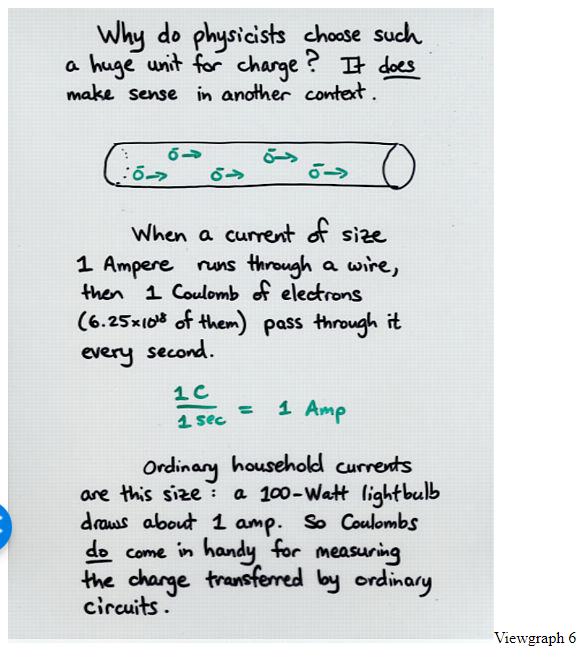 Why do physicists choose such
a huge unit for charge? It does
make sense in another context.
When a current of size
1 Ampere runs through a wire,
then 1 Coulomb of electrons
(6.25×10¹⁸ of them) pass through it
every second.
1 C
1 sec = 1 Amp
Ordinary household currents
are this size : a 100-Watt lightbulb
draws about 1 amp. So Coulombs
do come in handy for measuring
the charge transferred by ordinary
circuits.
Viewgraph 6